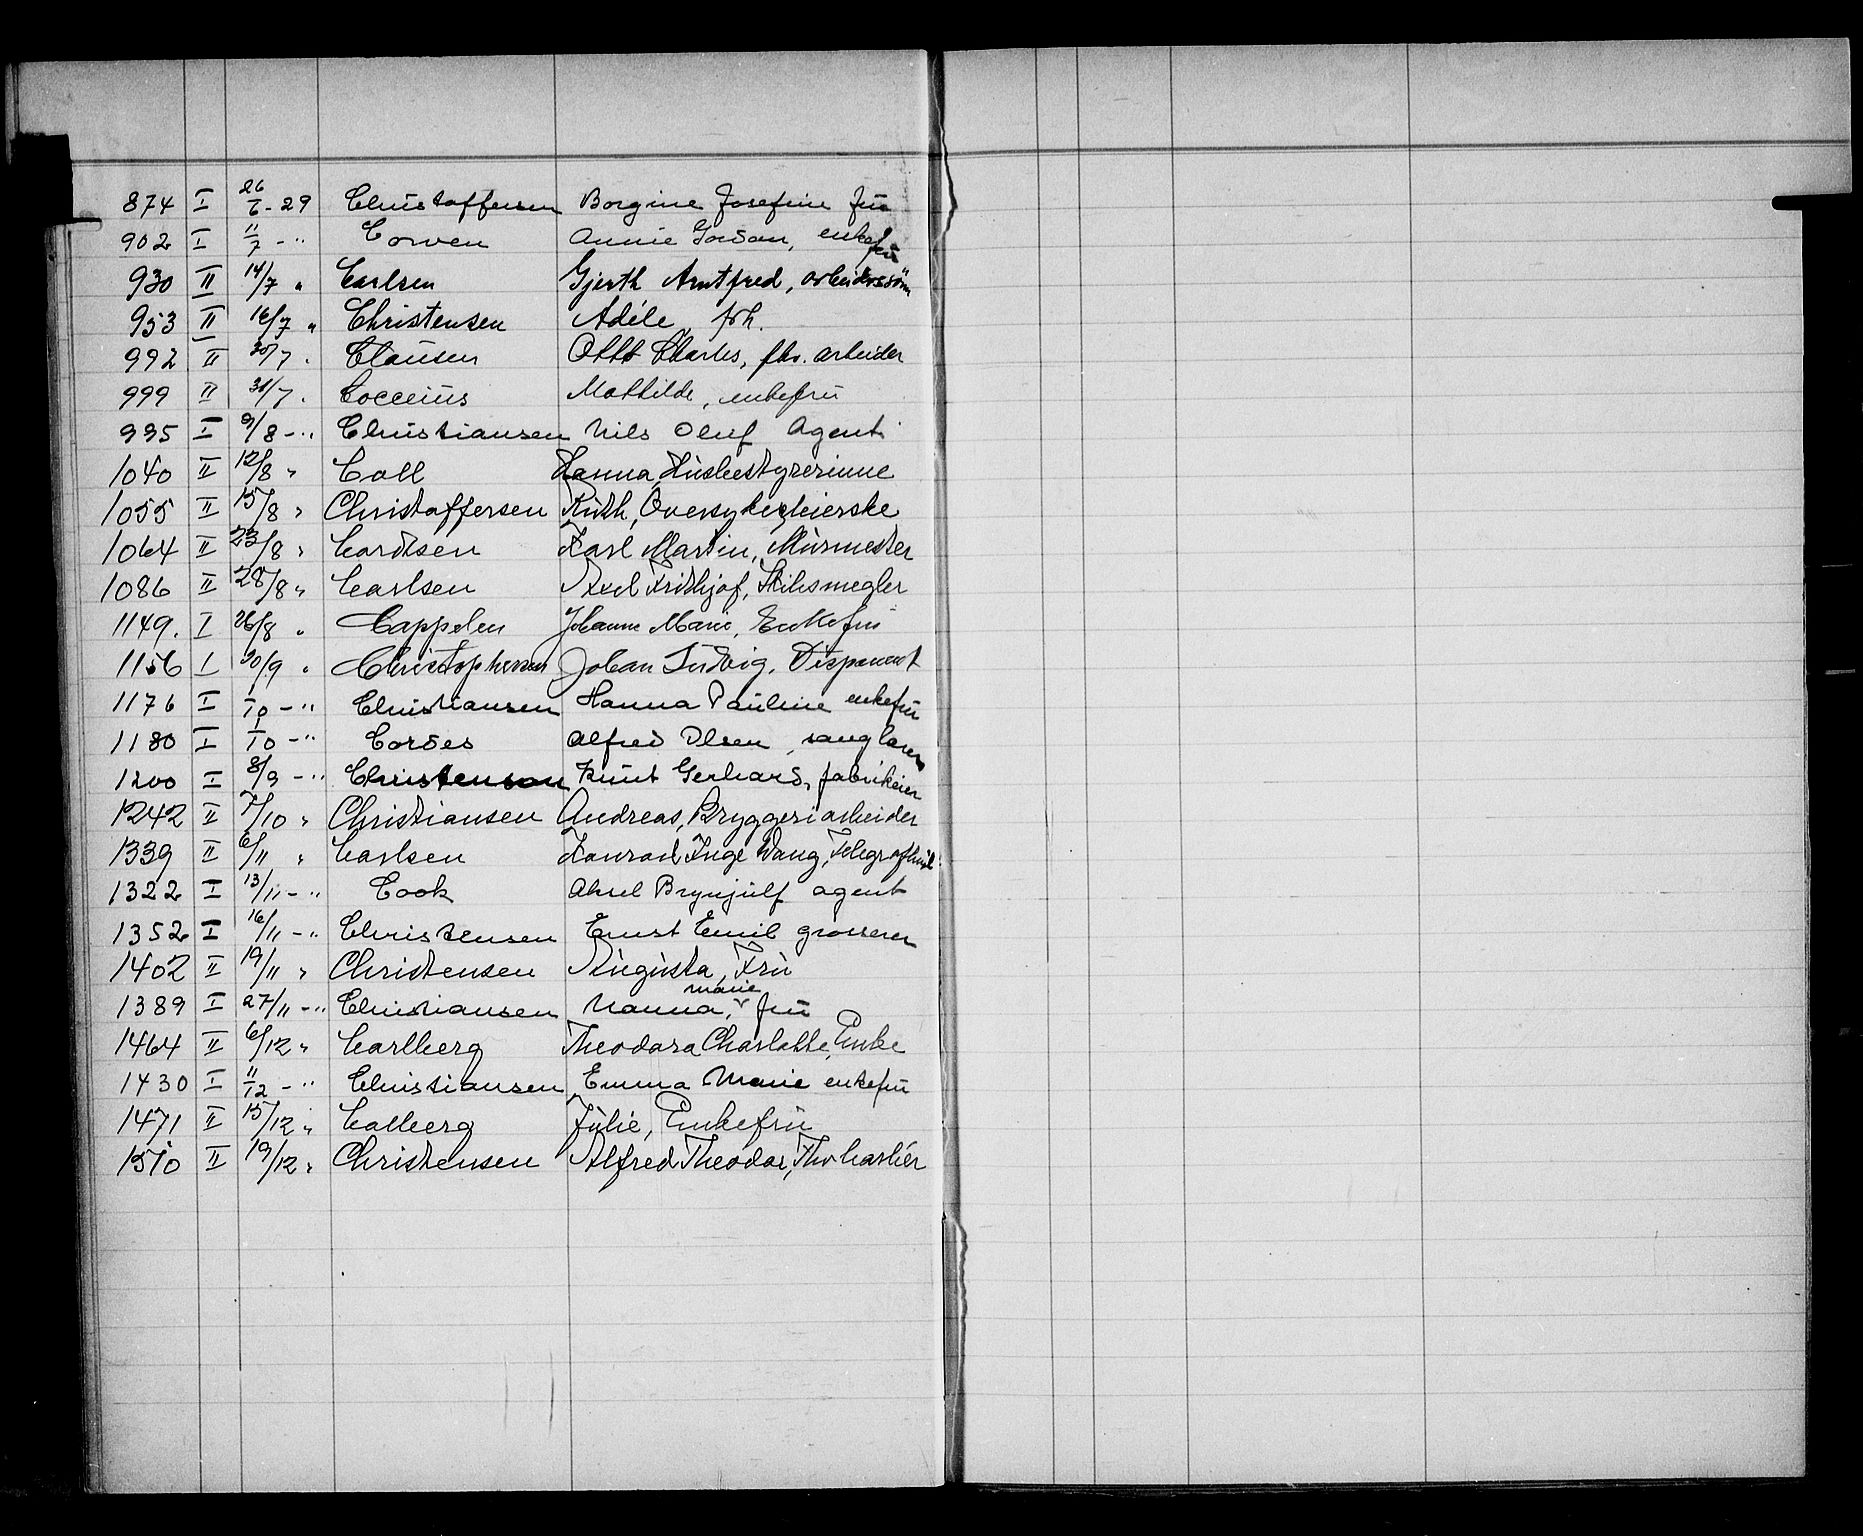 874 I 26/6-29 Christoffersen Borgine Josefine frū
902 I 11/7 - " Corwen Annie Gordan, enkefrū
930 II 14/7 " Carlsen Gjerth Arntfred, arbeiderssøn
953 II 16/7 " Christensen Adéle, frk.
992 II 30/7 " Claūsen Otto Charles, fhv. arbeider
999 II 31/7 " Cocceiūs Mathilde, enkefrū
995 I 9/8 - " Christiansen Nils Oluf Agent
1040 II 12/8 " Coll Hanna, Hūsbestyrerinne
1055 II 15/8 " Christoffersen Rūth, Oversykepleierske
1064 II 23/8 " Cardtsen Karl Martin, Mūrmester
1086 II 28/8 " Carlsen Axel Fridthjof, Skibsmegler
1149. I 26/8 " Cappelen Johanne Marie, Enkefru
1156 I 30/9 " Christophersen Johan Ludvig, Disponent
1176 I 1/10 - " Christiansen Hanna Paūline enkefrū
1180 I 1/10 - " Cordes Alfred Olsen, sanglærer
1200 I 8/9 - " Christenson Knūt Gerhard, fabrikeier
1242 II 7/10 " Christiansen Andreas, Bryggeriarbeider
1339 II 6/11 " Carlsen Konrad Inge Wang,
1322 I 13/11 - " Cook Aksel Brynjūlf agent
1352 I 16/11 - " Christensen Ernst Emil grosserer
1402 II 19/11 " Christensen Aūgūsta, Frū
1389 I 27/11 - " Christiansen Nanna, Marie frū
1464 II 6/12 " Carlberg Theodora Charlotte, Enke
1430 I 11/12 - " Christiansen Emma Marie enkefrū
1471 II 15/12 " Calberg Jūlie, Enkefrū
1510 II 19/12 " Christensen Alfred Theodor,